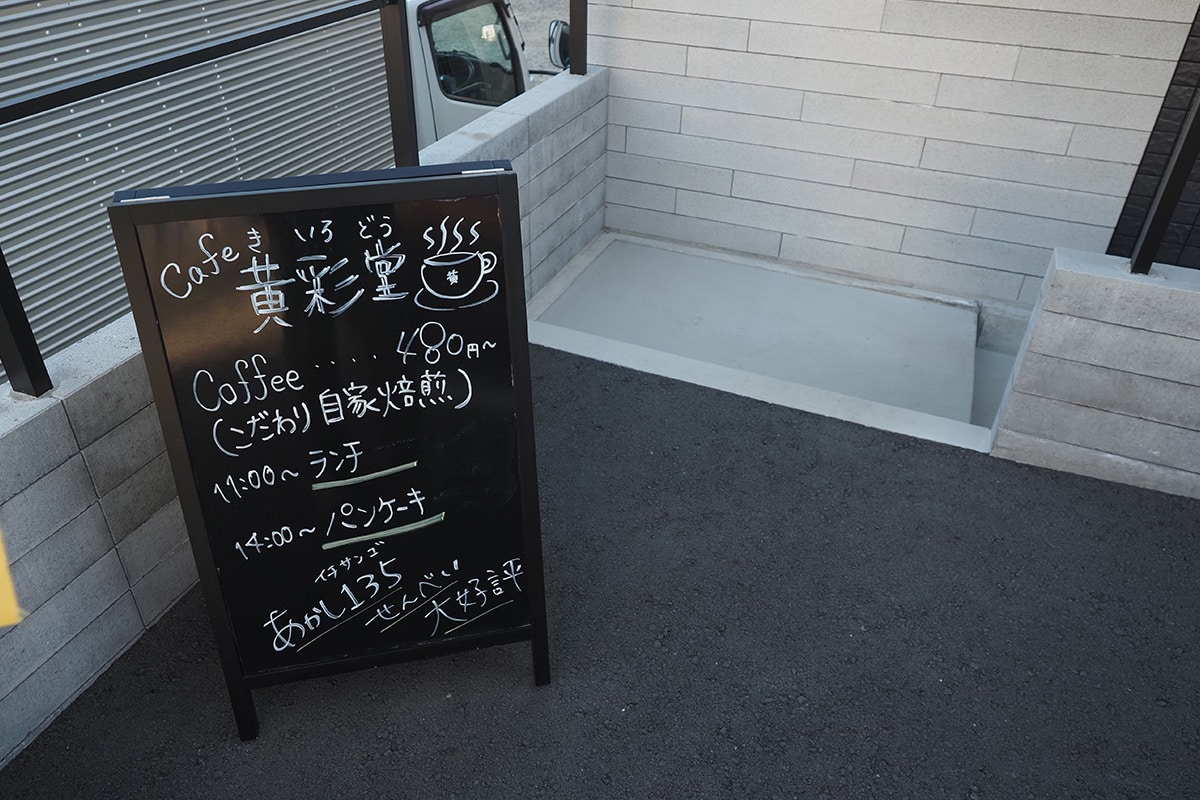 Cafe 黄彩堂
き いろ どう
黄
Coffee ..... 480円～
(こだわり自家焙煎)
11:00～ ランチ
14:00～ パンケーキ
イチサンゴ
あかし135 せんべい 大好評